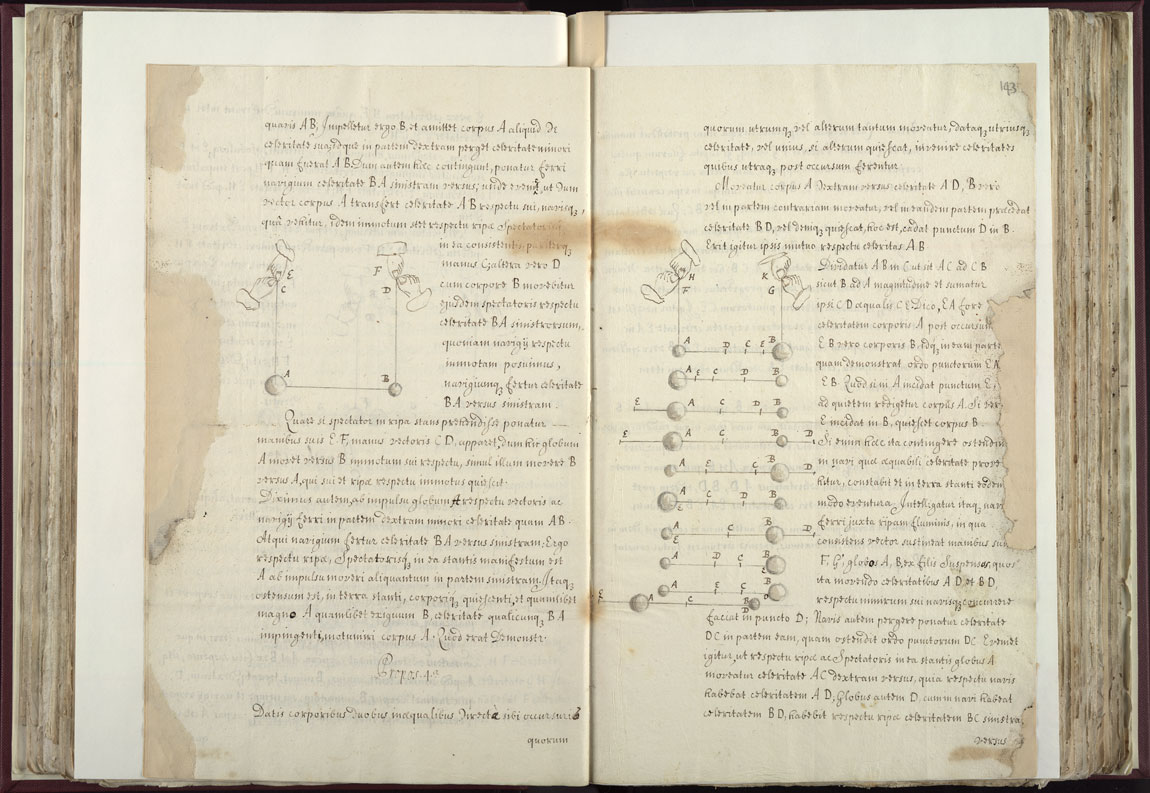 quavis AB; Impelletur ergo B, et amittet corpus A aliquid de
celeritate sua, idque in partem dextram perget celeritate minori
quam fuerat AB. Dum autem hæc contingunt, ponatur ferri
navigium celeritate BA sinistram versus, unde evenit, ut dum
vector corpus A transfert celeritate AB respectu sui, navisq,
quâ vehitur, idem immotum stet respectu ripæ Spectatorisq,
in ea consistentis, pariterq,
manus C, altera vero D
cum corpore B movebitur
ejusdem spectatoris respectu
celeritate BA sinistrorsum,
quoniam navigij respectu
immotam posuimus,
navigiumq, fertur celeritate
BA versus sinistram.
E
C
F
D
A
B
Quare si spectator in ripa stans prehendisse ponatur
manibus suis E. F, manus vectoris C D, apparet, dum hic globum
A movet versus B immotum sui respectu, simul illum movere B
versus A, qui sui et ripæ respectu immotus quiescit.
Diximus autem, ab impulsu globum A respectu vectoris ac
navigij ferri in partem dextram minori celeritate quam AB.
Atqui navigium fertur celeritate BA versus sinistram; Ergo
respectu ripæ, Spectatorisq, in ea stantis manifestum est
A ab impulsu moveri aliquantum in partem sinistram. Itaq,
ostensum est, in terra stanti, corporiq, quiescenti, et quamlibet
magno A quamlibet exiguum B, celeritate qualicunq, BA
impingenti, motum iri corpus A. Quod erat Demonstr.
Propos. 4.
Datis corporibus duobus inæqualibus directe sibi occursuris
quorum
143
quorum utrumq, vel alterum tantum moveatur, dataq, utriusq,
celeritate, vel unius, si alterum quiescat, invenire celeritates
quibus utraq, post occursum ferentur.
Moveatur corpus A dextram versus celeritate AD, B vero
vel in partem contrariam moveatur, vel in eandem partem præcedat
celeritate BD, vel deniq, quiescat, hoc est, cadat punctum D in B.
Erit igitur ipsis mutuo respectu celeritas AB.
Dividatur AB in C ut sit AC ad CB
sicut B ad A magnitudine et sumatur
ipsi CD æqualis CE. Dico, EA fore
celeritatem corporis A post occursum
EB vero corporis B, idq, in eam partem
quam demonstrat ordo punctorum EA
EB. Quod si in A incidat punctum E,
ad quietem redigetur corpus A. Si vero
E incidat in B, quiescet corpus B.
Si enim hæc ita contingere ostendimus
in navi quæ æquabili celeritate provehitur,
constabit et in terra stanti eodem
modo eventura. Intelligatur itaq, navis
ferri juxta ripam fluminis, in qua
consistens vector sustineat manibus suis
F, G, globos A, B, ex filis suspensos, quos
ita movendo celeritatibus AD et BD,
respectu nimirum sui navisq, concurrere
H
F
K
G
A D C E B
A E C D B
E A C D B
E A C B D
A E C B D
A E C D B
A E C B D
A D C B E
A E C B D
E A C B D
faciat in puncto D; Navis autem pergere ponatur celeritate
DC in partem eam, quam ostendit ordo punctorum DC. Eveniet
igitur, ut respectu ripæ ac Spectatoris in ea stantis globus A
moveatur celeritate AC dextram versus, quia respectu navis
habebat celeritatem AD; Globus autem D, cum in navi habeat
celeritatem BD, habebit respectu ripæ celeritatem BC sinistram
versus